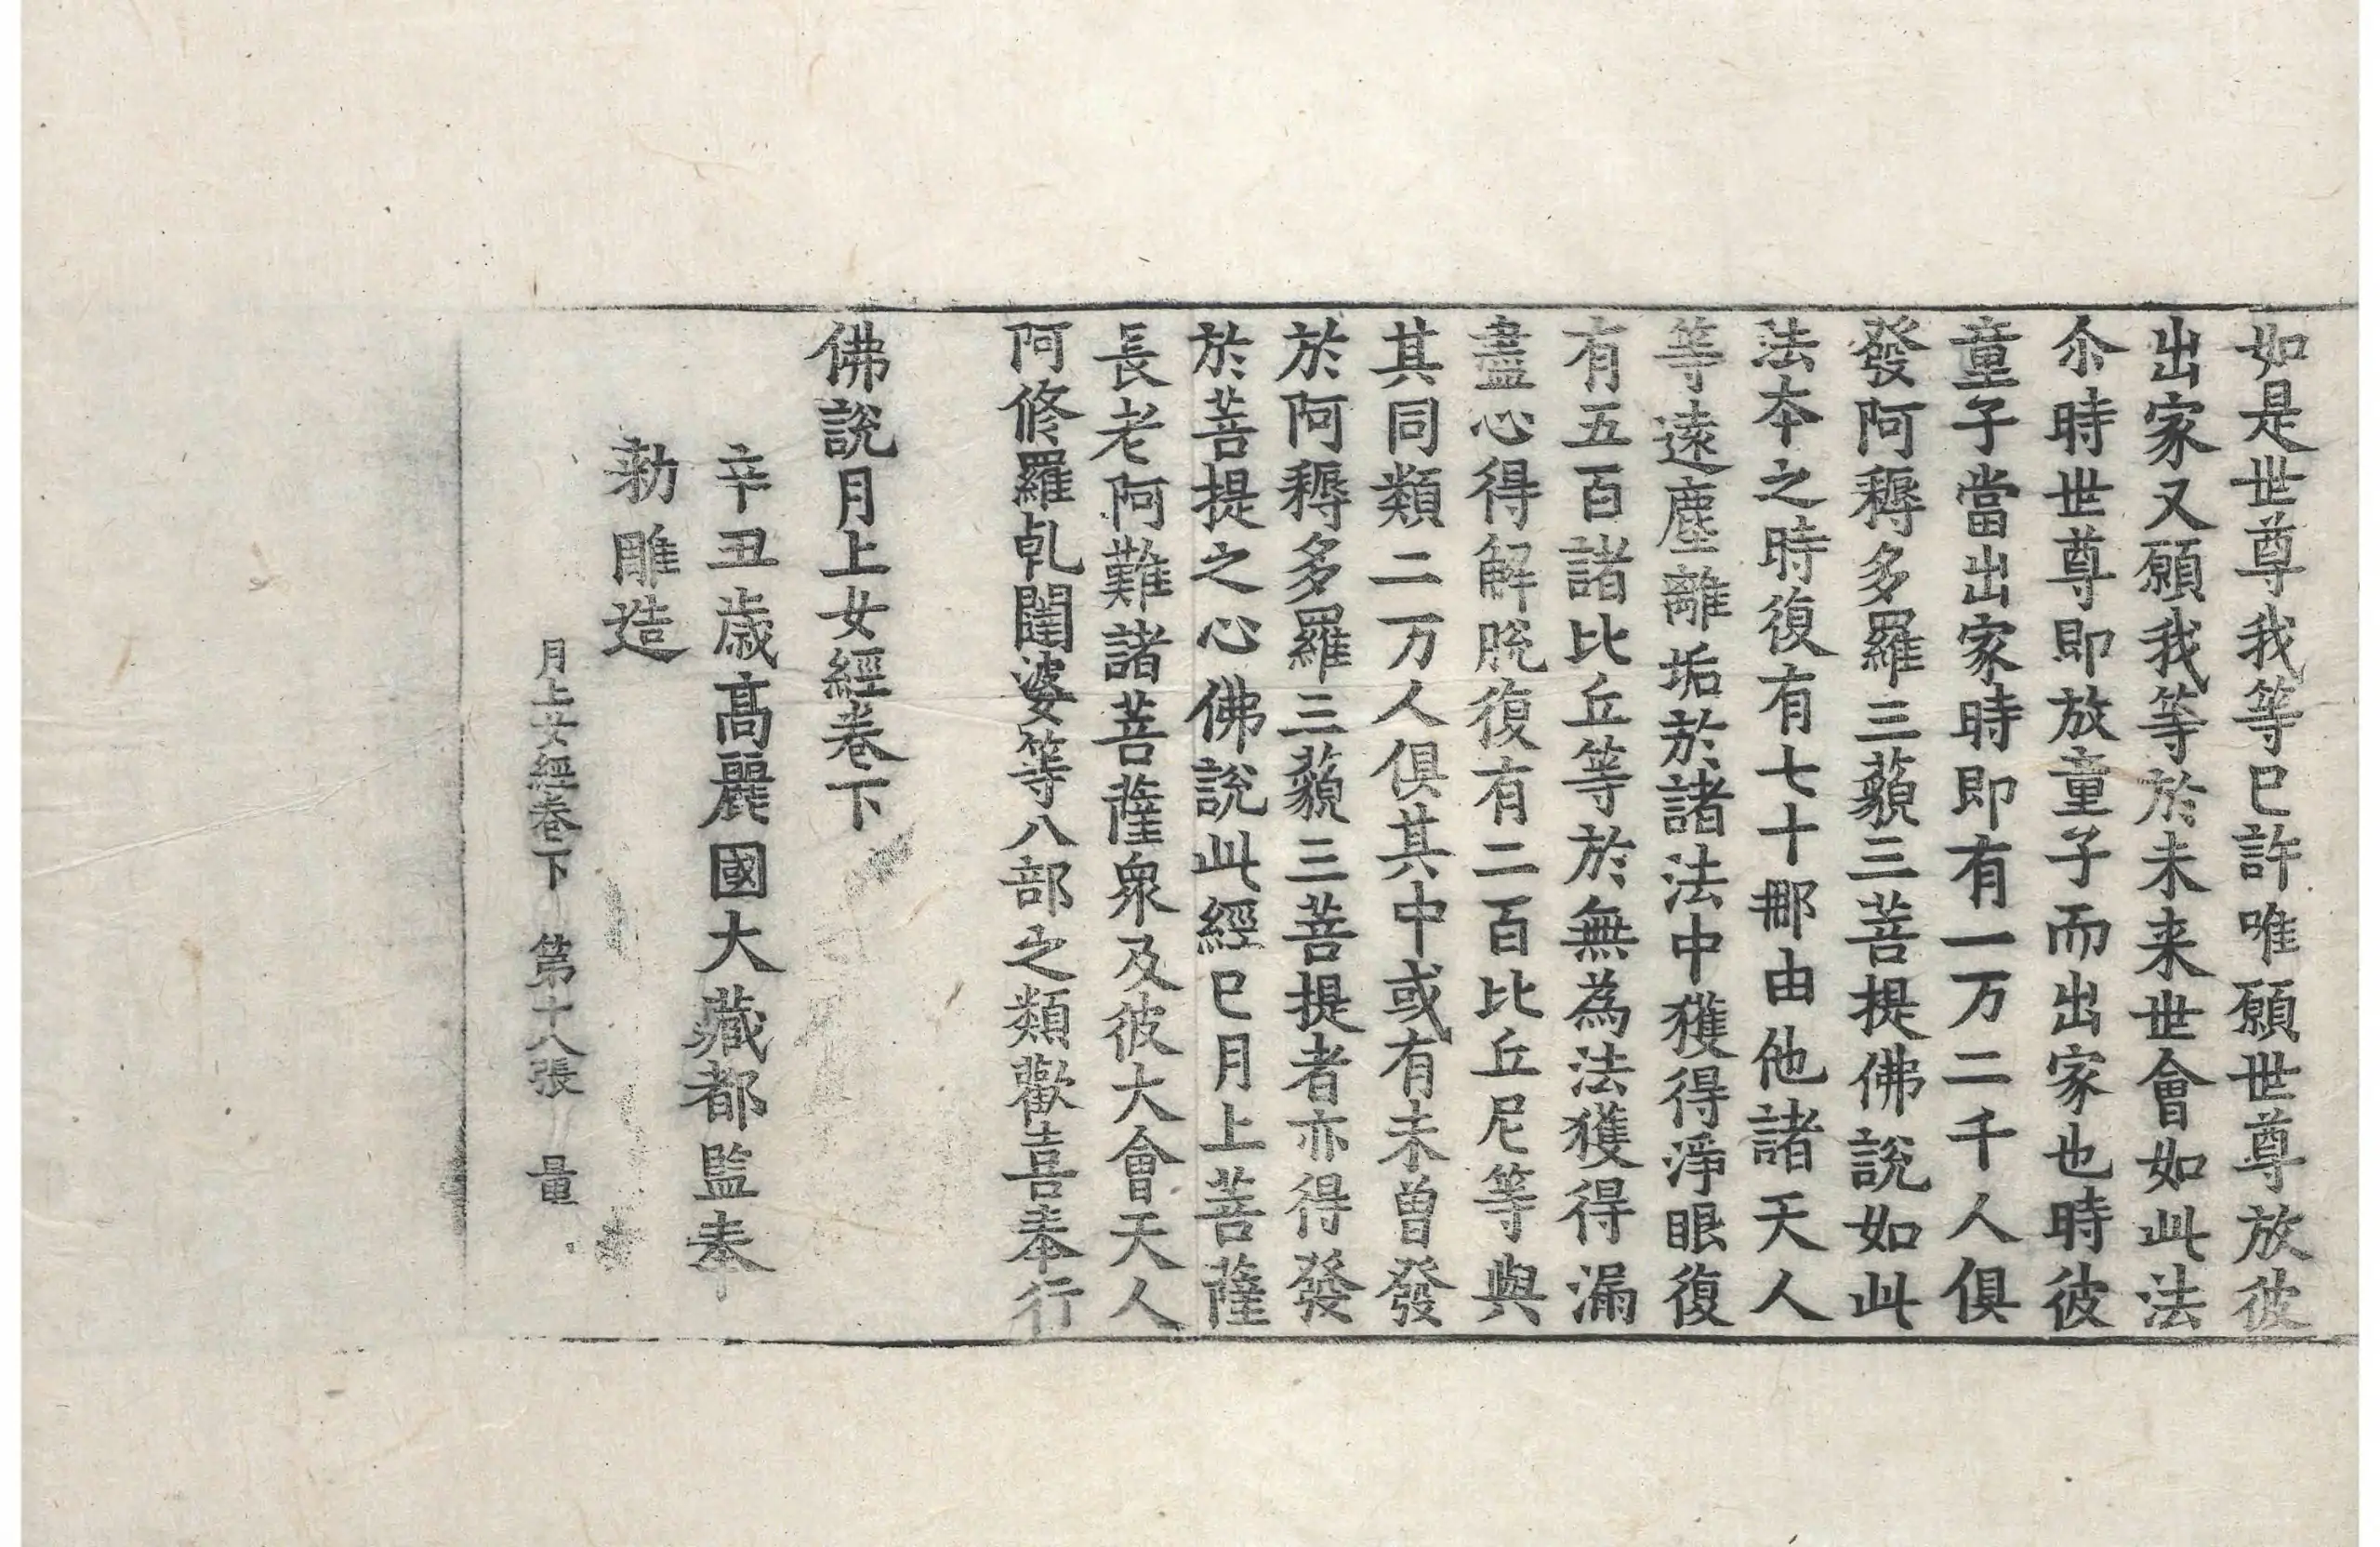 如是世尊我等已許唯願世尊放彼
出家又願我等於未来世會如此法
尒時世尊即放童子而出家也時彼
童子當出家時即有一万二千人俱
發阿耨多羅三藐三菩提佛說如此
法本之時復有七十那由他諸天人
等遠塵離垢於諸法中獲得淨眼復
有五百諸比丘等於無為法獲得漏
盡心得解脫復有二百比丘尼等與
其同類二万人俱其中或有未曾發
於阿耨多羅三藐三菩提者亦得發
於菩提之心佛說此經已月上菩薩
長老阿難諸菩薩衆及彼大會天人
阿修羅乹闥婆等八部之類歡喜奉行
佛說月上女經卷下
辛丑歲髙麗國大藏都監奉
勑雕造
月上女經卷下 第十八張 量